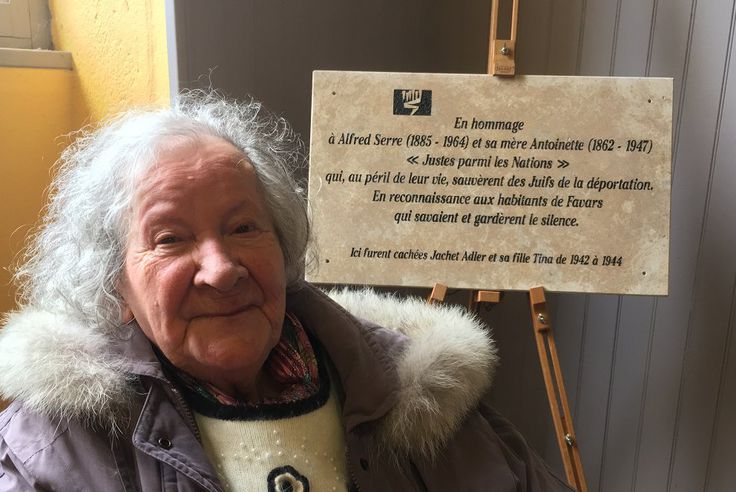 En hommage
à Alfred Serre (1885 - 1964) et sa mère Antoinette (1862 - 1947)
« Justes parmi les Nations »
qui, au péril de leur vie, sauvèrent des Juifs de la déportation.
En reconnaissance aux habitants de Favars
qui savaient et gardèrent le silence.
Ici furent cachées Jachet Adler et sa fille Tina de 1942 à 1944